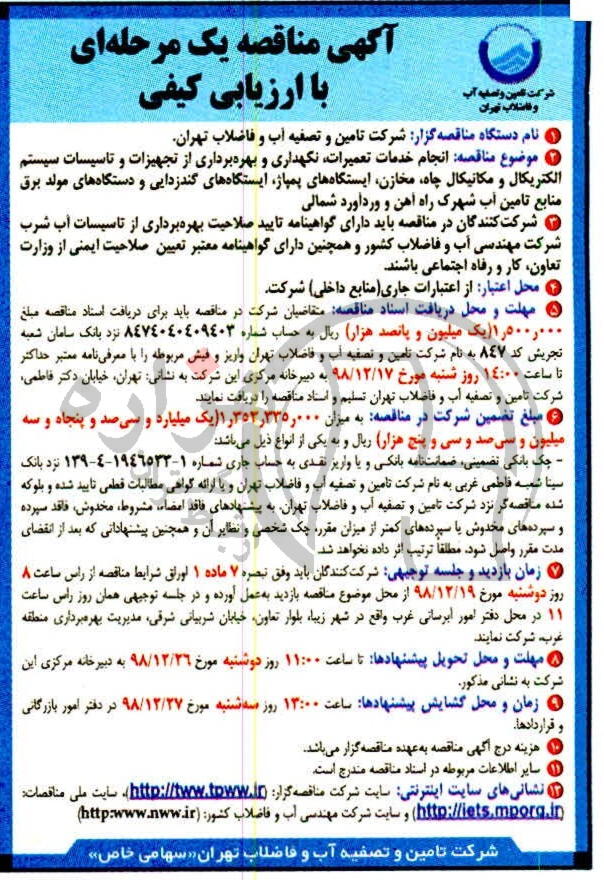 آگهی مناقصه یک مرحله‌ای
با ارزیابی کیفی
شرکت تامین و تصفیه آب
و فاضلاب تهران
۱ نام دستگاه مناقصه‌گزار: شرکت تامین و تصفیه آب و فاضلاب تهران.
۲ موضوع مناقصه: انجام خدمات تعمیرات، نگهداری و بهره‌برداری از تجهیزات و تاسیسات سیستم
الکتریکال و مکانیکال چاه، مخازن، ایستگاه‌های پمپاژ، ایستگاه‌های گندزدایی و دستگاه‌های مولد برق
منابع تامین آب شهرک راه آهن و وردآورد شمالی
۳ شرکت‌کنندگان در مناقصه باید دارای گواهینامه تایید صلاحیت بهره‌برداری از تاسیسات آب شرب
شرکت مهندسی آب و فاضلاب کشور و همچنین دارای گواهینامه معتبر تعیین صلاحیت ایمنی از وزارت
تعاون، کار و رفاه اجتماعی باشند.
۴ محل اعتبار: از اعتبارات جاری(منابع داخلی) شرکت.
۵ مهلت و محل دریافت اسناد مناقصه: متقاضیان شرکت در مناقصه باید برای دریافت اسناد مناقصه مبلغ
۱٫۵۰۰٫۰۰۰(یک میلیون و پانصد هزار) ریال به حساب شماره ۸۴۷۴۰۴۰۴۰۹۴۰۳ نزد بانک سامان شعبه
تجریش کد ۸۴۷ به نام شرکت تامین و تصفیه آب و فاضلاب تهران واریز و فیش مربوطه را با معرفی‌نامه معتبر حداکثر
تا ساعت ۱۴:۰۰ روز شنبه مورخ ۹۸/۱۲/۱۷ به دبیرخانه مرکزی این شرکت به نشانی: تهران، خیابان دکتر فاطمی،
شرکت تامین و تصفیه آب و فاضلاب تهران تسلیم و اسناد مناقصه را دریافت نمایند.
۶ مبلغ تضمین شرکت در مناقصه: به میزان ۱٫۳۵۳٫۳۳۵٫۰۰۰(یک میلیارد و سی‌صد و پنجاه و سه
میلیون و سی‌صد و سی و پنج هزار) ریال و به یکی از انواع ذیل می‌باشد:
- چک بانکی تضمینی، ضمانتنامه بانکی و یا واریز نقدی به حساب جاری شماره ۱-۱۹۴۶۵۳۳-۴-۱۳۹ نزد بانک
سینا شعبه فاطمی غربی به نام شرکت تامین و تصفیه آب و فاضلاب تهران و یا ارائه گواهی مطالبات قطعی تایید شده و بلوکه
شده مناقصه‌گر نزد شرکت تامین و تصفیه آب و فاضلاب تهران. به پیشنهادهای فاقد امضاء، مشروط، مخدوش، فاقد سپرده
و سپرده‌های مخدوش یا سپرده‌های کمتر از میزان مقرر، چک شخصی و نظایر آن و همچنین پیشنهاداتی که بعد از انقضای
مدت مقرر واصل شود، مطلقاً ترتیب اثر داده نخواهد شد.
۷ زمان بازدید و جلسه توجیهی: شرکت‌کنندگان باید وفق تبصره ۷ ماده ۱ اوراق شرایط مناقصه از راس ساعت ۸
روز دوشنبه مورخ ۹۸/۱۲/۱۹ از محل موضوع مناقصه بازدید به‌عمل آورده و در جلسه توجیهی همان روز راس ساعت
۱۱ در محل دفتر امور آبرسانی غرب واقع در شهر زیبا، بلوار تعاون، خیابان شربیانی شرقی، مدیریت بهره‌برداری منطقه
غرب، شرکت نمایند.
۸ مهلت و محل تحویل پیشنهادها: تا ساعت ۱۱:۰۰ روز دوشنبه مورخ ۹۸/۱۲/۲۶ به دبیرخانه مرکزی این
شرکت به نشانی مذکور.
۹ زمان و محل گشایش پیشنهادها: ساعت ۱۳:۰۰ روز سه‌شنبه مورخ ۹۸/۱۲/۲۷ در دفتر امور بازرگانی
و قراردادها.
۱۰ هزینه درج آگهی مناقصه به‌عهده مناقصه‌گزار می‌باشد.
۱۱ سایر اطلاعات مربوطه در اسناد مناقصه مندرج است.
۱۲ نشانی‌های سایت اینترنتی: سایت شرکت مناقصه‌گزار: (http://tww.tpww.ir)، سایت ملی مناقصات:
(http://iets.mporg.ir) و سایت شرکت مهندسی آب و فاضلاب کشور: (http:www.nww.ir)
شرکت تامین و تصفیه آب و فاضلاب تهران«سهامی خاص»